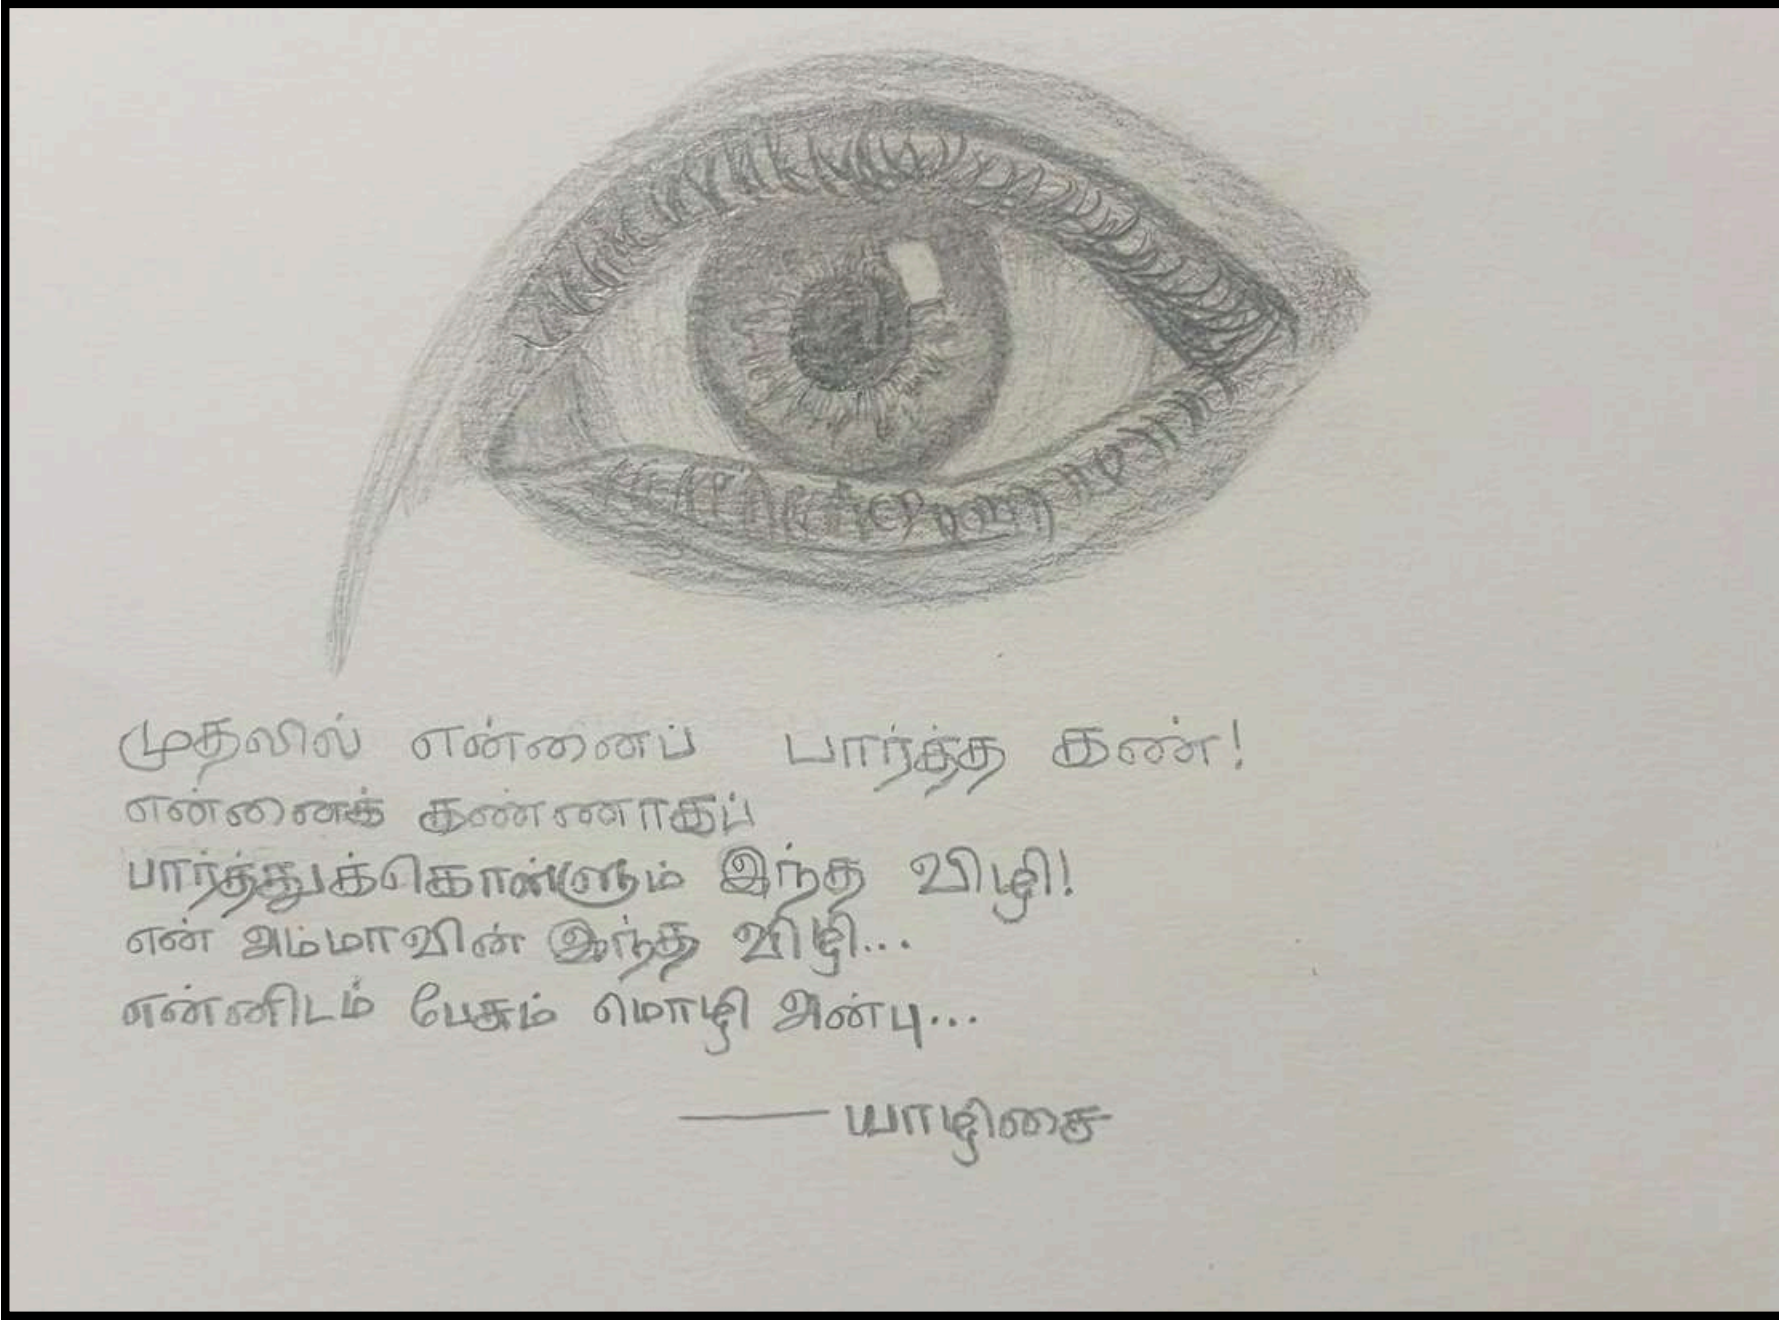 முதலில் என்னைப் பார்த்த கண்!
என்னைக் கண்ணாகப்
பார்த்துக்கொள்ளும் இந்த விழி!
என் அம்மாவின் இந்த விழி...
என்னிடம் பேசும் மொழி அன்பு...
—— யாழிசை